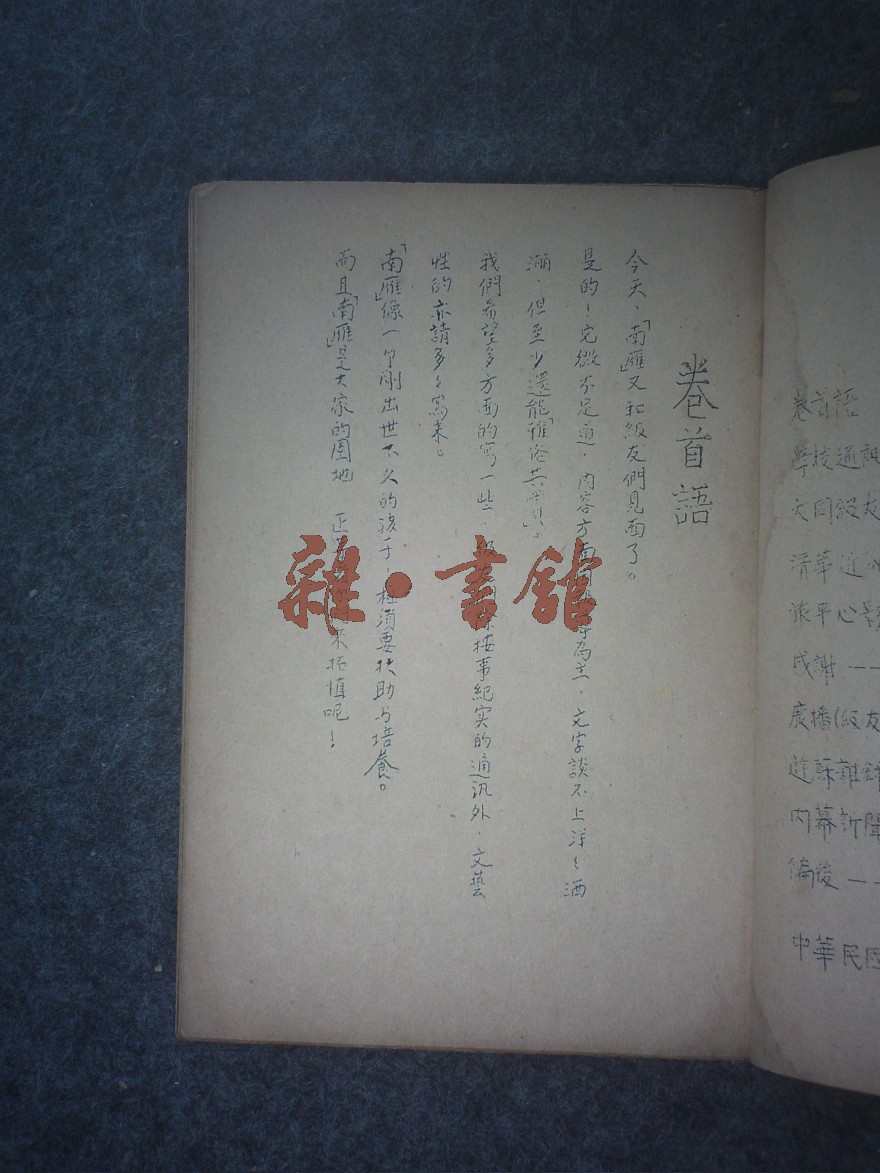 卷首語
今天，「南雁」又和級友們見面了。
是的！它微不足道，內容方面為主，文字談不上洋々洒
洒，但至少還能「雅俗共賞」。
我們希望多方面的寫一些，按事紀实的通訊外，文藝
性的亦請多々寫来。
「南雁」像一个剛出世不久的孩子，極須要扶助与培養。
而且「南雁」是大家的園地 正来拓植呢！
雜·書舘
卷首語
學校通訊
級友
清華近
謝 一一
廣播(級友
遊蘇雜
內幕新聞
編後 一一
中華民國